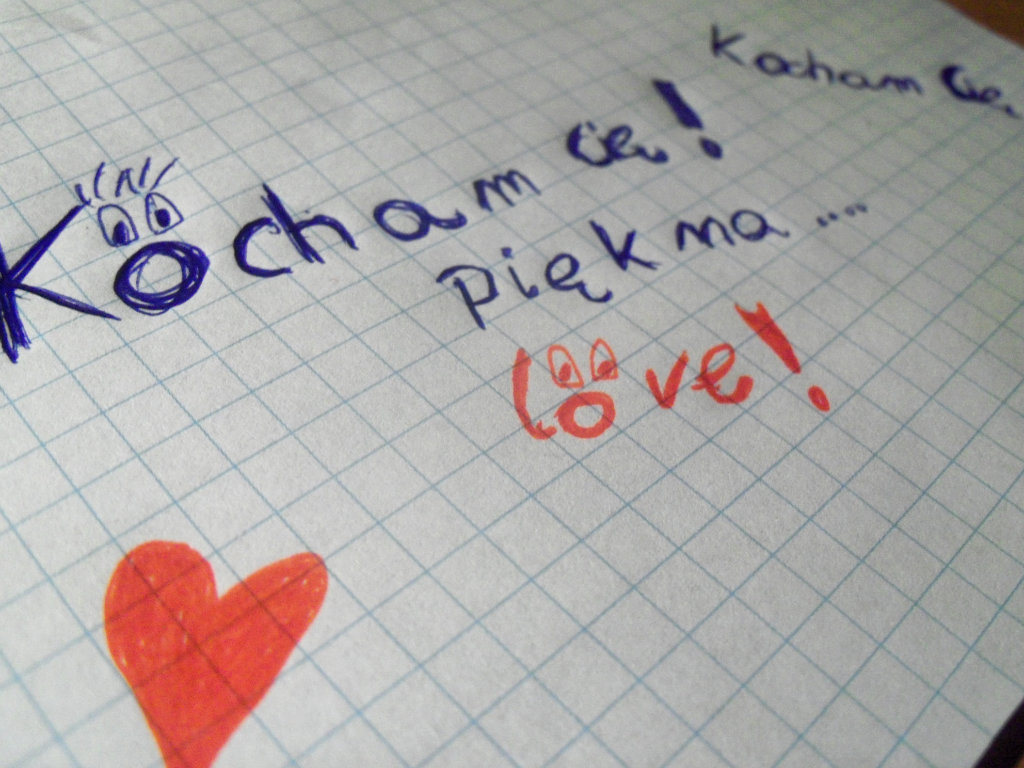 Kocham Cię
Kocham Cię!
Piękna....
love!